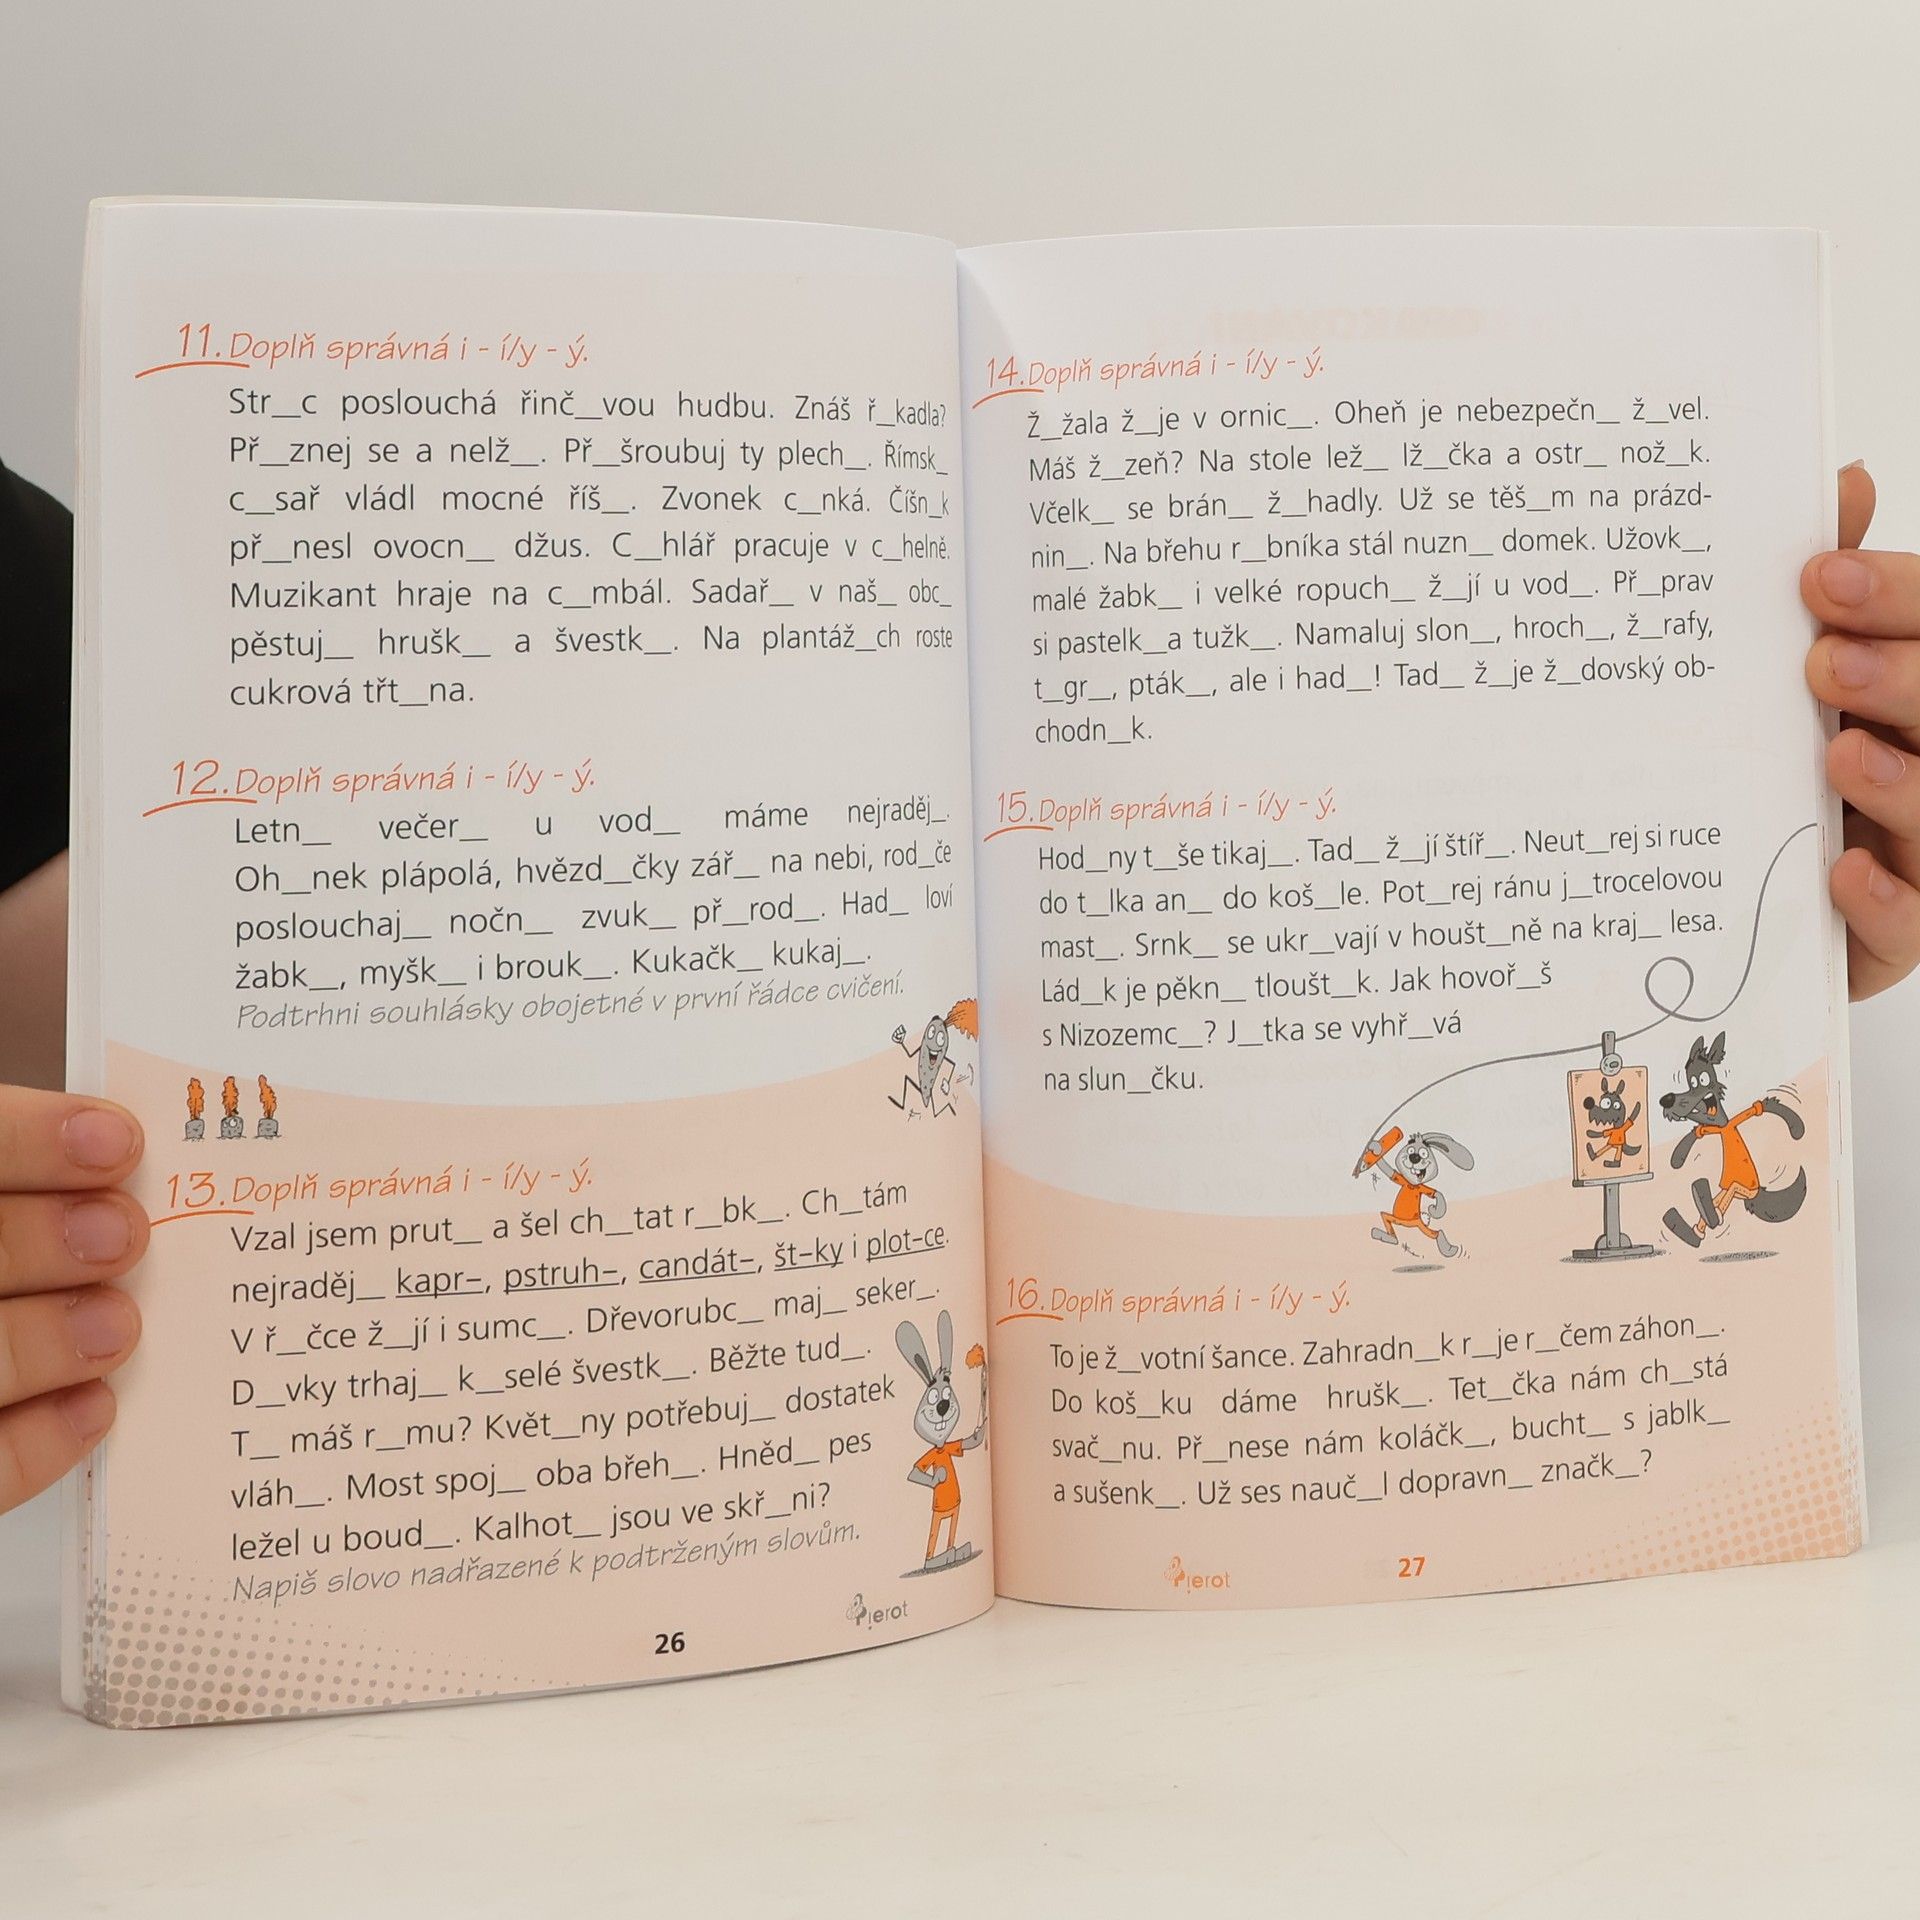 11. Doplň správná i - í/y - ý.
Str__c poslouchá řinč__vou hudbu. Znáš ř_kadla?
Př__znej se a nelž__. Př__šroubuj ty plech__. Římsk_
c__sař vládl mocné říš__. Zvonek c__nká. Číšn_k
př__nesl ovocn__ džus. C__hlář pracuje v c_helně.
Muzikant hraje na c__mbál. Sadař__ v naš_ obc_
pěstuj__ hrušk__ a švestk__. Na plantáž__ch roste
cukrová třt__na.
12. Doplň správná i - í/y - ý.
Letn__ večer__ u vod__ máme nejraděj_.
Oh__nek plápolá, hvězd__čky zář__ na nebi, rod_če
poslouchaj__ nočn__ zvuk__ př__rod__. Had_ loví
žabk__, myšk__ i brouk__. Kukačk__ kukaj__.
Podtrhni souhlásky obojetné v první řádce cvičení.
13. Doplň správná i - í/y - ý.
Vzal jsem prut__ a šel ch__tat r__bk__. Ch__tám
nejraděj__ kapr–, pstruh–, candát–, št–ky i plot–ce.
V ř__čce ž__jí i sumc__. Dřevorubc__ maj__ seker_.
D__vky trhaj__ k__selé švestk__. Běžte tud__.
T__ máš r__mu? Květ__ny potřebuj__ dostatek
vláh__. Most spoj__ oba břeh__. Hněd__ pes
ležel u boud__. Kalhot__ jsou ve skř__ni?
Napiš slovo nadřazené k podtrženým slovům.
Pierot
26
14. Doplň správná i - í/y - ý.
Ž__žala ž__je v ornic__. Oheň je nebezpečn__ ž__vel.
Máš ž__zeň? Na stole lež__ lž__čka a ostr__ nož__k.
Včelk__ se brán__ ž__hadly. Už se těš__m na prázd-
nin__. Na břehu r__bníka stál nuzn__ domek. Užovk__,
malé žabk__ i velké ropuch__ ž__jí u vod__. Př__prav
si pastelk__a tužk__. Namaluj slon__, hroch__, ž__rafy,
t__gr__, pták__, ale i had__! Tad__ ž__je ž__dovský ob-
chodn__k.
15. Doplň správná i - í/y - ý.
Hod__ny t__še tikaj__. Tad__ ž__jí štíř__. Neut__rej si ruce
do t__lka an__ do koš__le. Pot__rej ránu j__trocelovou
mast__. Srnk__ se ukr__vají v houšt__ně na kraj__ lesa.
Lád__k je pěkn__ tloušt__k. Jak hovoř__š
s Nizozemc__? J__tka se vyhř__vá
na slun__čku.
16. Doplň správná i - í/y - ý.
To je ž__votní šance. Zahradn__k r__je r__čem záhon__.
Do koš__ku dáme hrušk__. Tet__čka nám ch__stá
svač__nu. Př__nese nám koláčk__, bucht__ s jablk__
a sušenk__. Už ses nauč__l dopravn__ značk__?
Pierot
27